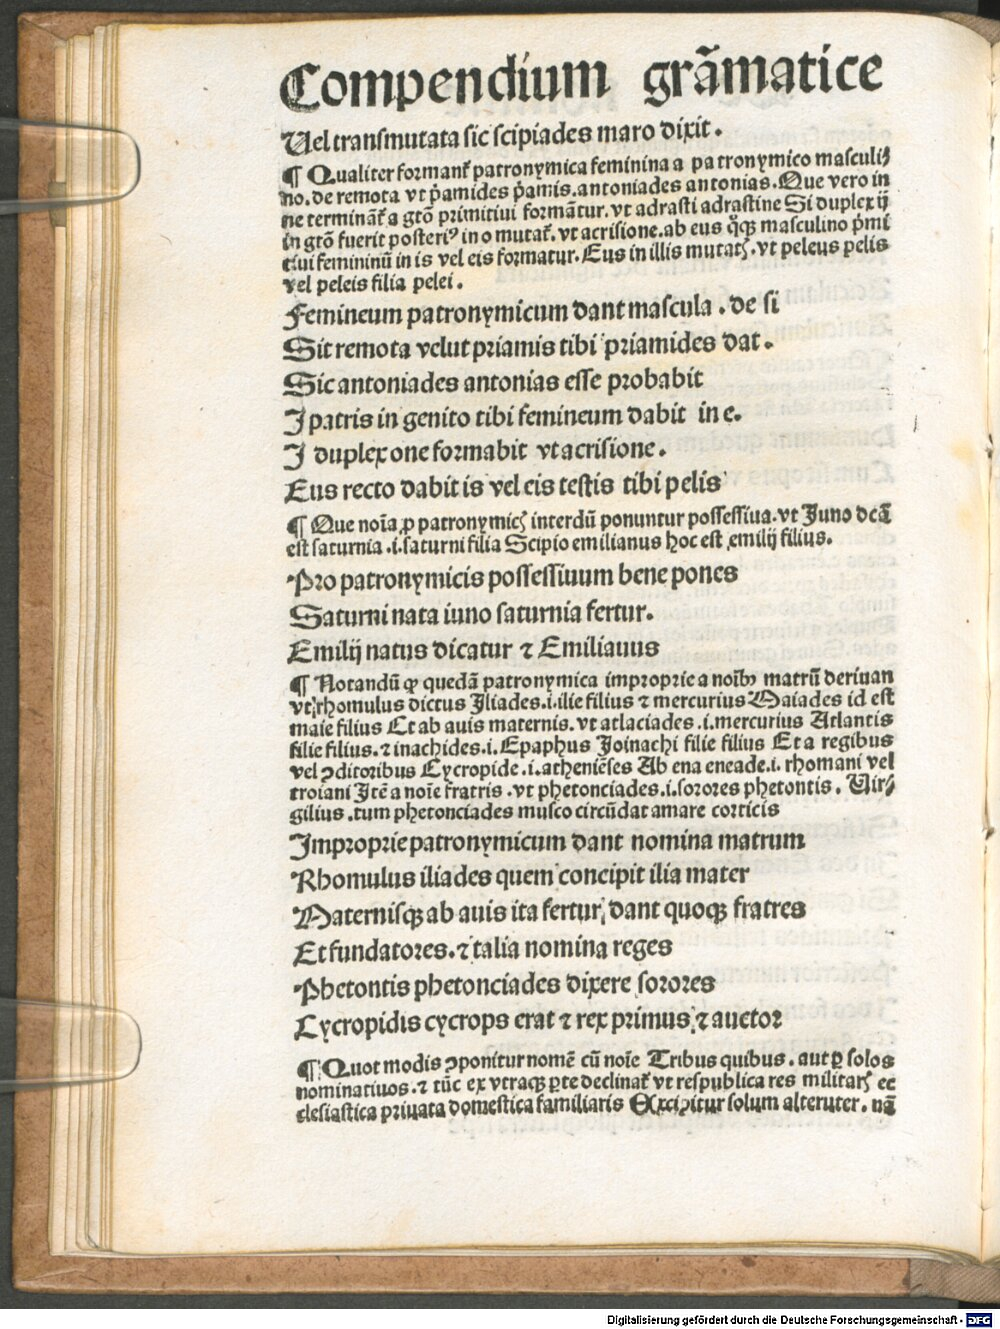 Compendium grãmatice
Uel transmutata sic scipiades maro dixit.
¶ Qualiter formanť patronymica feminina a patronymico masculi⸗
no. de remota vt p̃amides p̃amis. antoniades antonias. Que vero in
ne termināť a gtõ primitiui formãtur. vt adrasti adrastine Si duplex ij
in gtõ fuerit posteriꝰ in o mutať. vt acrisione. ab eus q̃qꝫ masculino p̃mi
tiui femininũ in is vel eis formatur. Eus in illis mutatꝭ. vt peleus pelis
vel peleis filia pelei.
Femineum patronymicum dant mascula. de si
Sit remota velut priamis tibi priamides dat.
Sic antoniades antonias esse probabit
I patris in genito tibi femineum dabit in e.
I duplex one formabit vt acrisione.
Eus recto dabit is vel eis testis tibi pelis
¶ Que noĩa ꝓ patronymicꝭ interdũ ponuntur possessiua. vt Juno dcã
est saturnia .i. saturni filia Scipio emilianus hoc est emilij filius.
Pro patronymicis possessiuum bene pones
Saturni nata iuno saturnia fertur.
Emilij natus dicatur ⁊ Emilianus
¶ Notandũ ꝙ quedã patronymica improprie a noĩbꝰ matrũ deriuan
vt rhomulus dictus Iliades .i. ilie filius ⁊ mercurius Maiades id est
maie filius Et ab auis maternis. vt atlaciades .i. mercurius Atlantis
filie filius. ⁊ inachides .i. Epaphus Joinachi filie filius Et a regibus
vel ꝯditoribus Cycropide .i. atheniẽses Ab ena eneade .i. rhomani vel
troiani Itẽ a noĩe fratris . vt phetonciades .i. sorores phetontis. Vir⸗
gilius . tum phetonciades musco circũdat amare corticis
Improprie patronymicum dant nomina matrum
Rhomulus iliades quem concipit ilia mater
Maternisqꝫ ab auis ita fertur, dant quoqꝫ fratres
Et fundatores. ⁊ talia nomina reges
Phetontis phetonciades dixere sorores
Cycropidis cycrops erat ⁊ rex primus, ⁊ auctor
¶ Quot modis ꝯponitur nomẽ cũ noĩe Tribus quibus . aut ꝑ solos
nominatiuos. ⁊ tũc ex vtraqꝫ ꝑte declinať vt respublica res militarꝭ ec
clesiastica priuata domestica familiaris Excipitur solum alteruter. nã
Digitalisierung gefördert durch die Deutsche Forschungsgemeinschaft - DFG